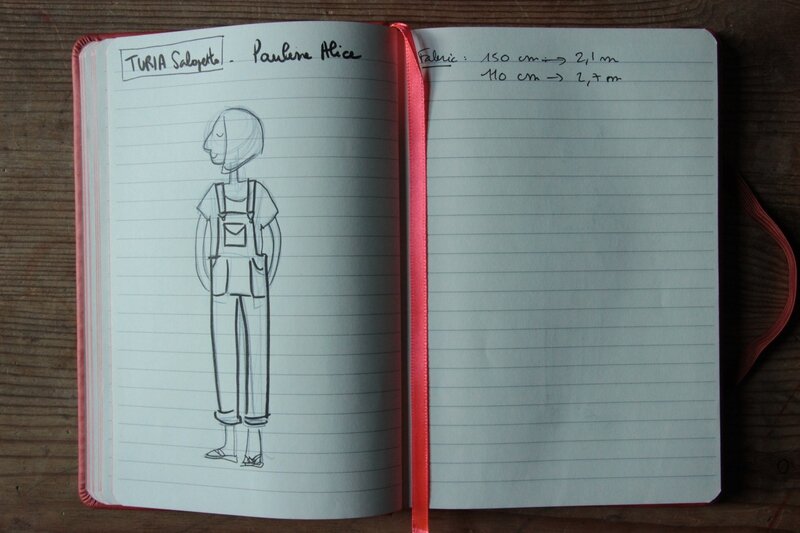 TURIA Salopette - Pauline Alice
Fabric: 150 cm → 2,1 m
110 cm → 2,7 m